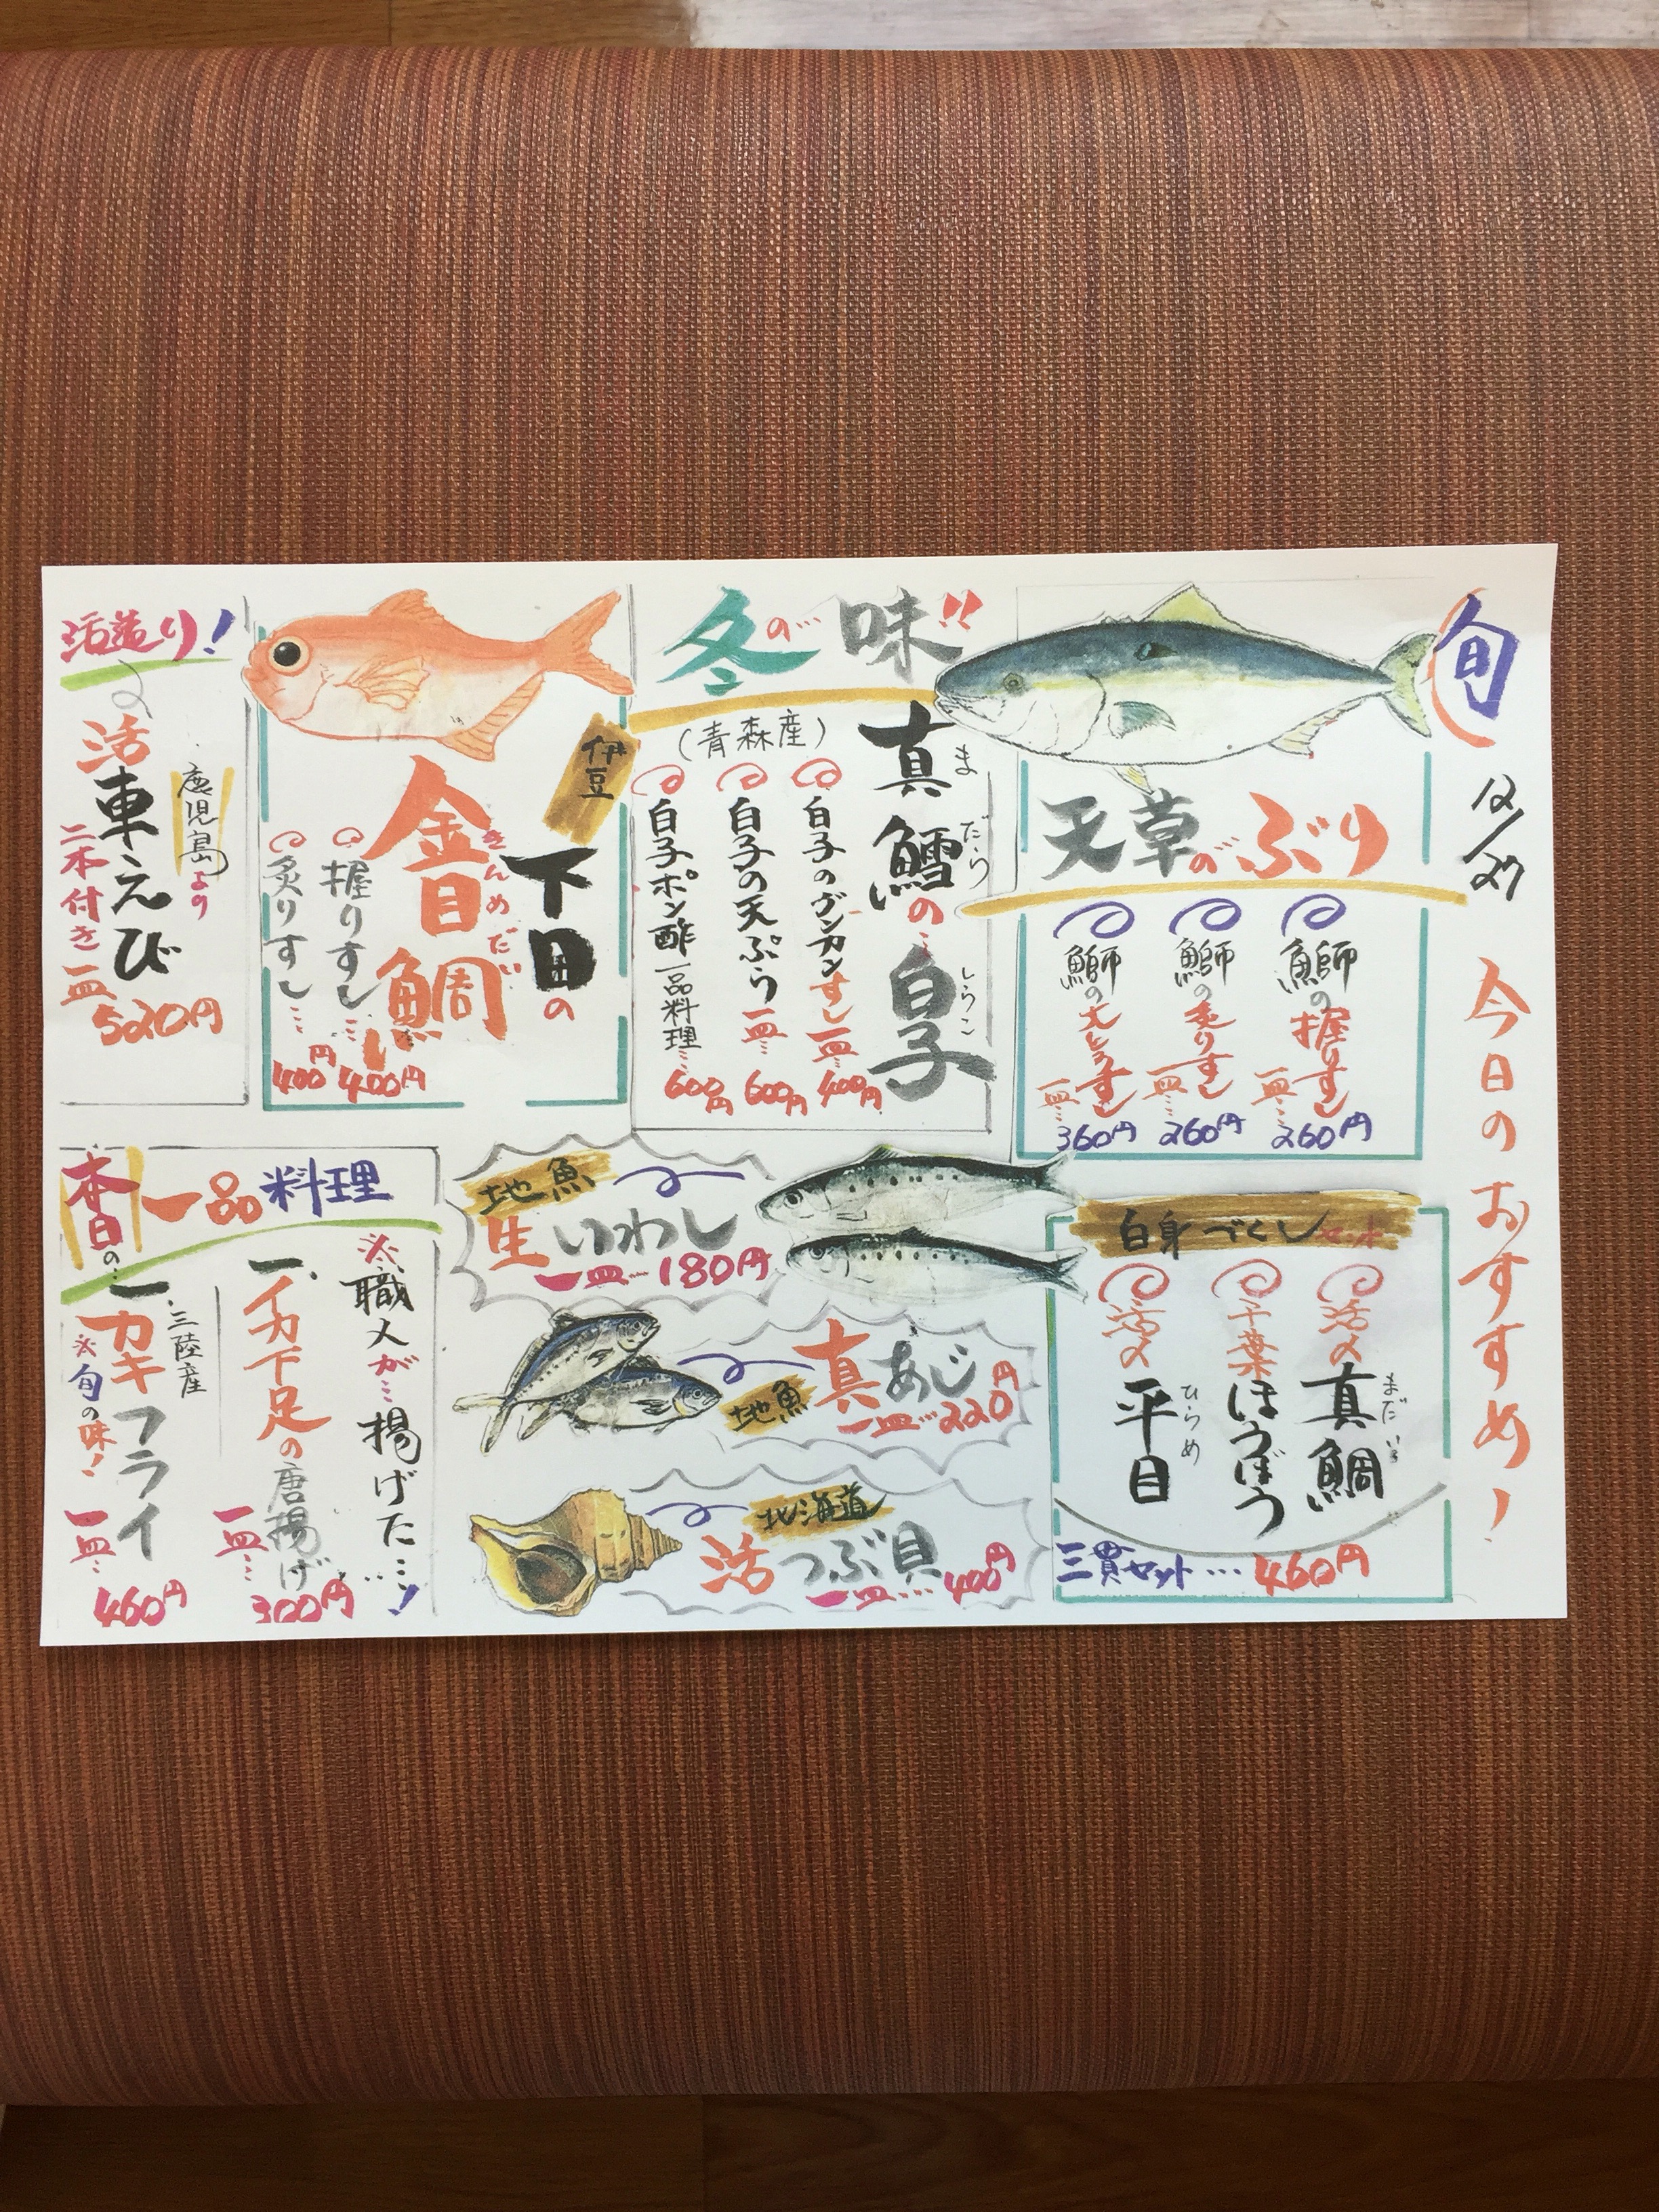 旬
12/27
今日のおすすめ!
天草のぶり
鰤の握りすし
一皿…260円
鰤の炙りすし
一皿…260円
鰤の大とろすし
一皿…360円
冬の味!!
真鱈の…白子
まだら
しらこ
(青森産)
白子のグンカンすし一皿…400円
白子の天ぷら一皿…600円
白子ポン酢一品料理…600円
伊豆
下田の
金目鯛
きんめだい
握りすし…400円
炙りすし…400円
活造り!
鹿児島より
活車えび
二本付き一皿520円
白身づくしセット
活〆真鯛
まだい
千葉ほうぼう
活〆平目
ひらめ
三貫セット…460円
地魚
生いわし
一皿…180円
真あじ
地魚
一皿…220円
北海道
活つぶ貝
一皿…400円
本日の一品料理
※職人が…揚げた…!
一、イカ下足の唐揚げ
一皿…300円
一、三陸産
カキフライ
※旬の味!
一皿…460円